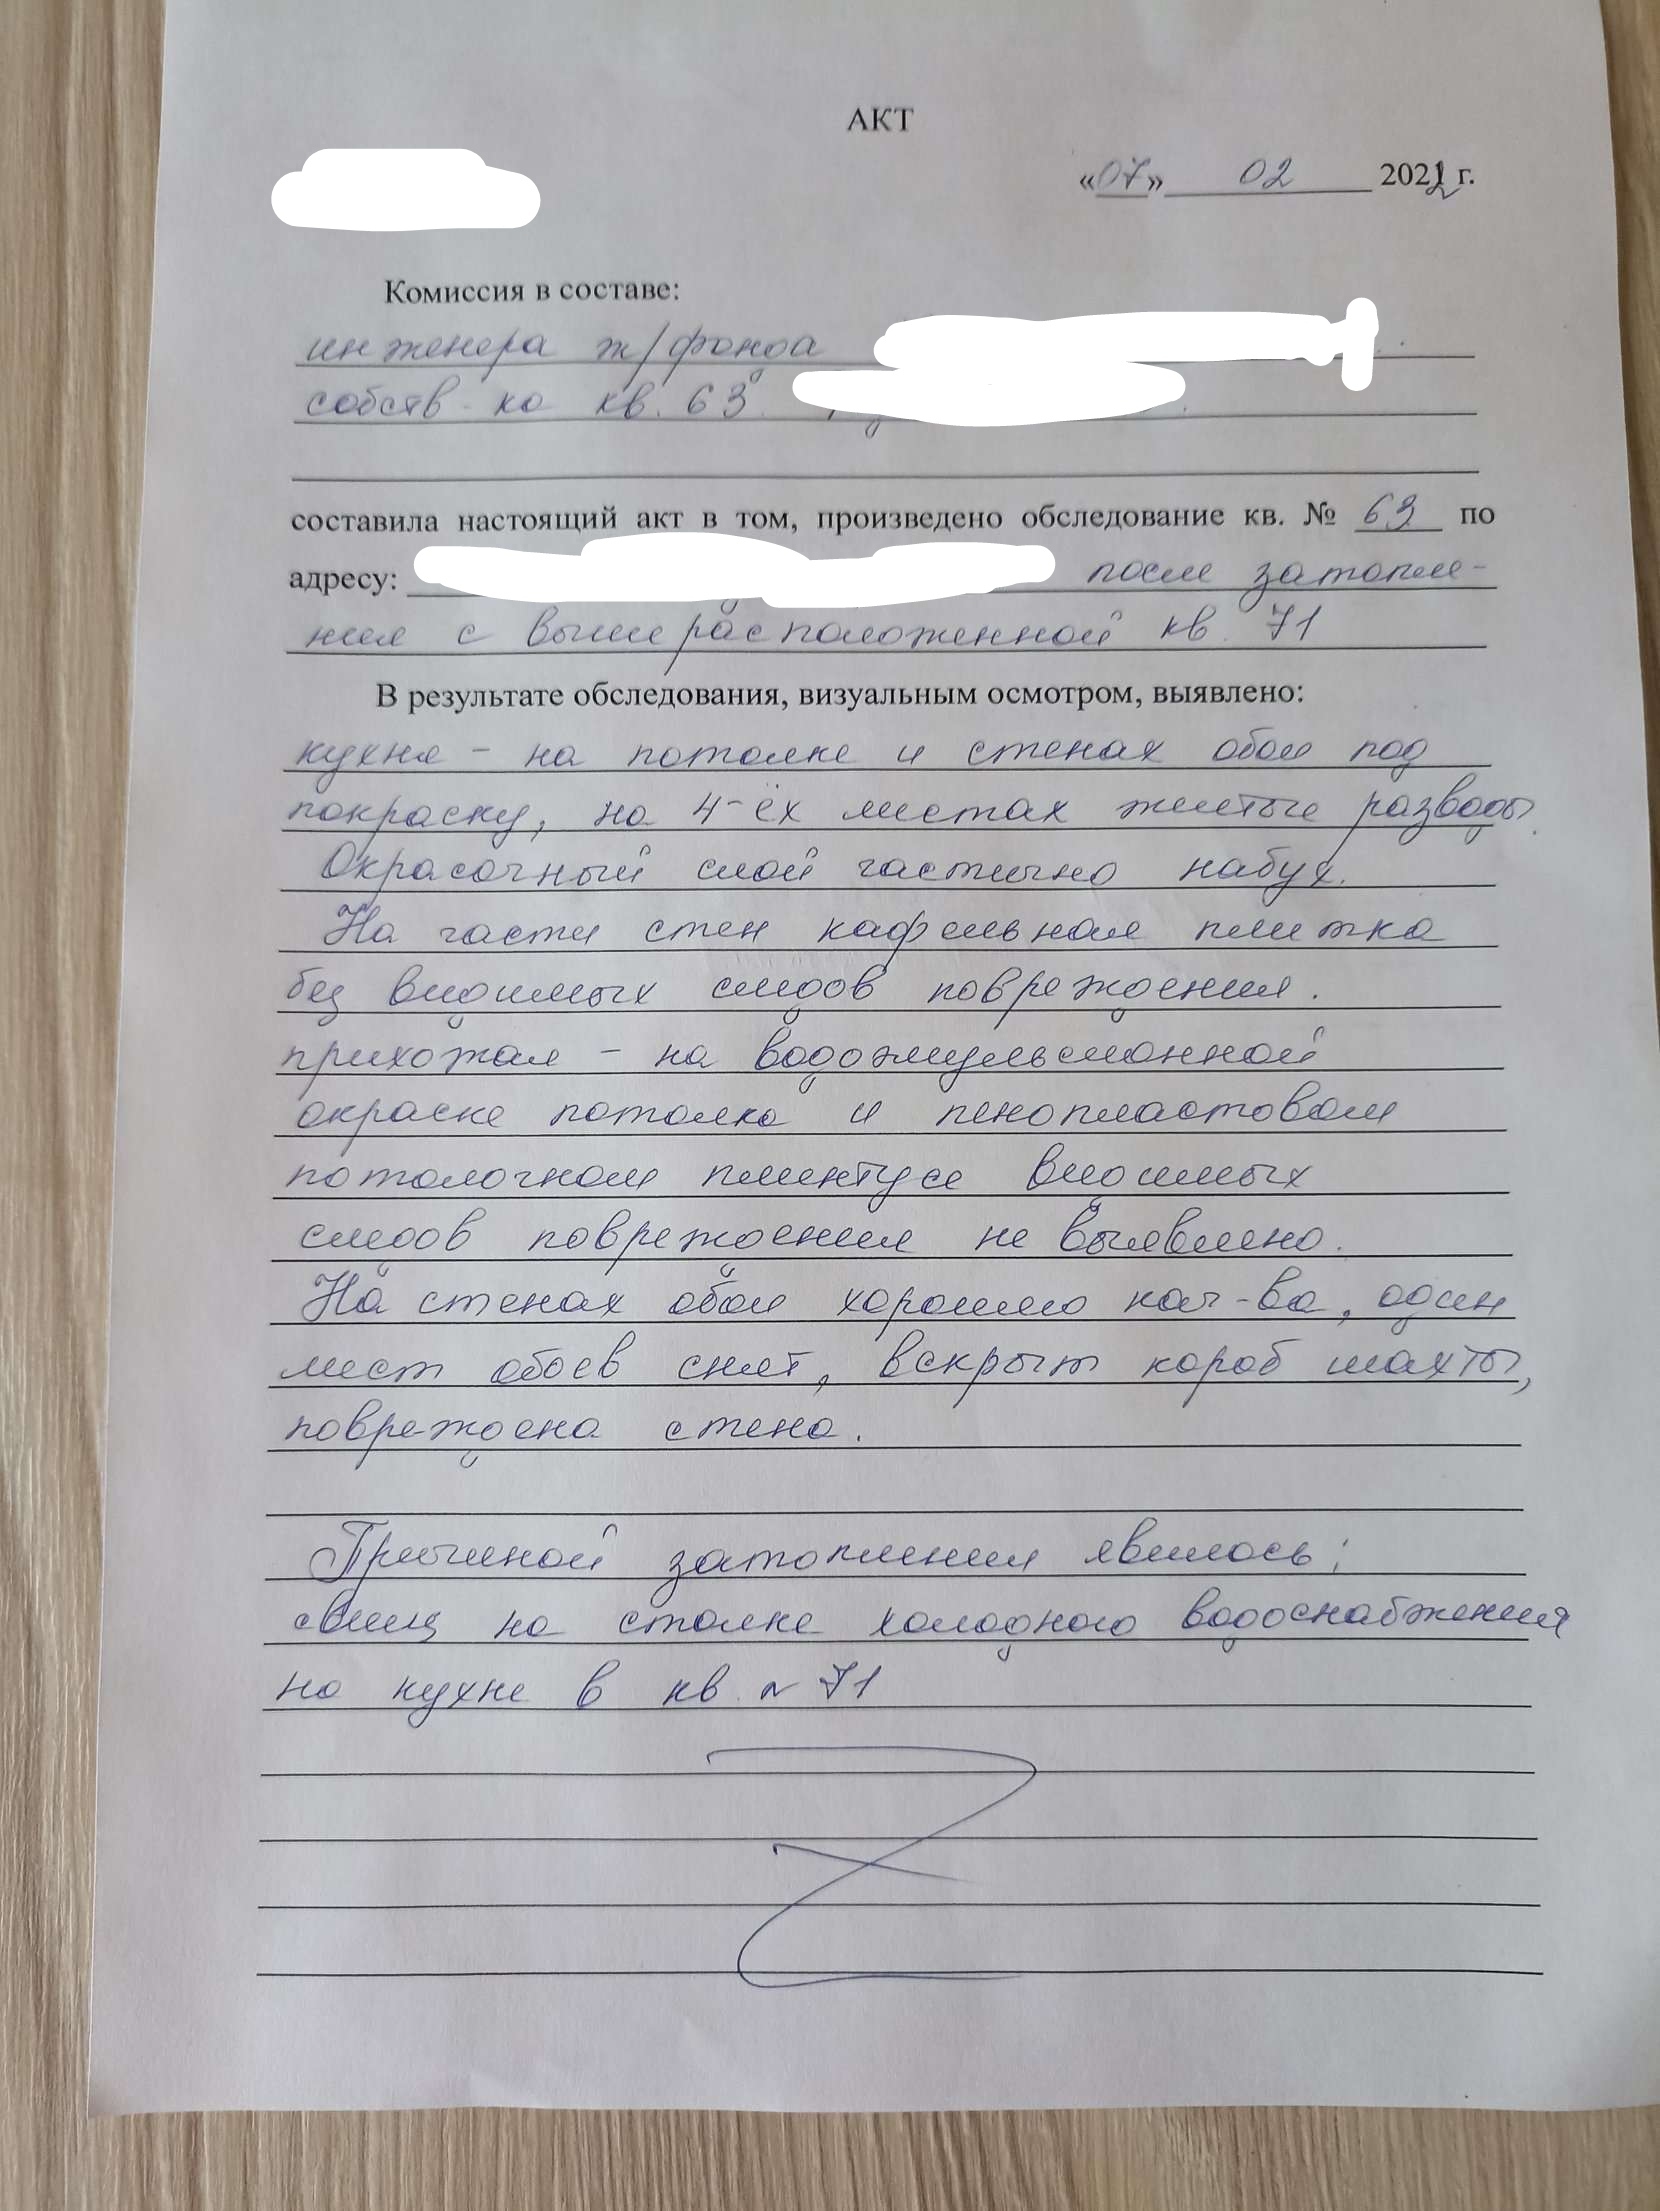 АКТ
«07» 02 2022 г.
Комиссия в составе:
инженера ж/фонда
собств-ка кв. 63
составила настоящий акт в том, произведено обследование кв. № 63 по
адресу: после затопле-
ния с вышерасположенной кв. 71
В результате обследования, визуальным осмотром, выявлено:
кухня - на потолке и стенах обои под
покраску, на 4-ёх листах желтые разводы.
Окрасочный слой частично набух.
На части стен кафельная плитка
без видимых следов повреждения.
прихожая - на водоэмульсионной
окраске потолка и пенопластовом
потолочном плинтусе видимых
следов повреждения не выявлено.
На стенах обои хорошего кач-ва, один
лист обоев снят, вскрыт короб шахты,
повреждена стена.
Причиной затопления явилось:
свищ на стояке холодного водоснабжения
на кухне в кв. № 71